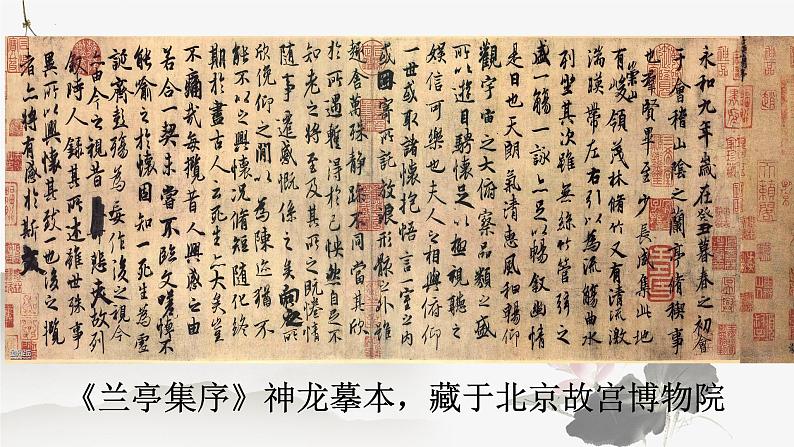 永和九年歲在癸丑暮春之初會
于會稽山陰之蘭亭脩稧事
也群賢畢至少長咸集此地
有崇山峻領茂林脩竹又有清流激
湍暎帶左右引以為流觴曲水
列坐其次雖無絲竹管弦之
盛一觴一詠亦足以暢敘幽情
是日也天朗氣清惠風和暢仰
觀宇宙之大俯察品類之盛
所以遊目騁懷足以極視聽之
娛信可樂也夫人之相與俯仰
一世或取諸懷抱悟言一室之內
或因寄所託放浪形骸之外雖
趣舍萬殊靜躁不同當其欣
於所遇蹔得於己怏然自足不
知老之將至及其所之既惓情
隨事遷感慨係之矣向之所
欣俛仰之閒以為陳迹猶不
能不以之興懷況脩短隨化終
期於盡古人云死生亦大矣豈
不痛哉每攬昔人興感之由
若合一契未嘗不臨文嗟悼不
能喻之於懷固知一死生為虛
誕齊彭殤為妄作後之視今
亦由今之視昔悲夫故列
敘時人錄其所述雖世殊事
異所以興懷其致一也後之攬
者亦將有感於斯文
《兰亭集序》神龙摹本，藏于北京故宫博物院